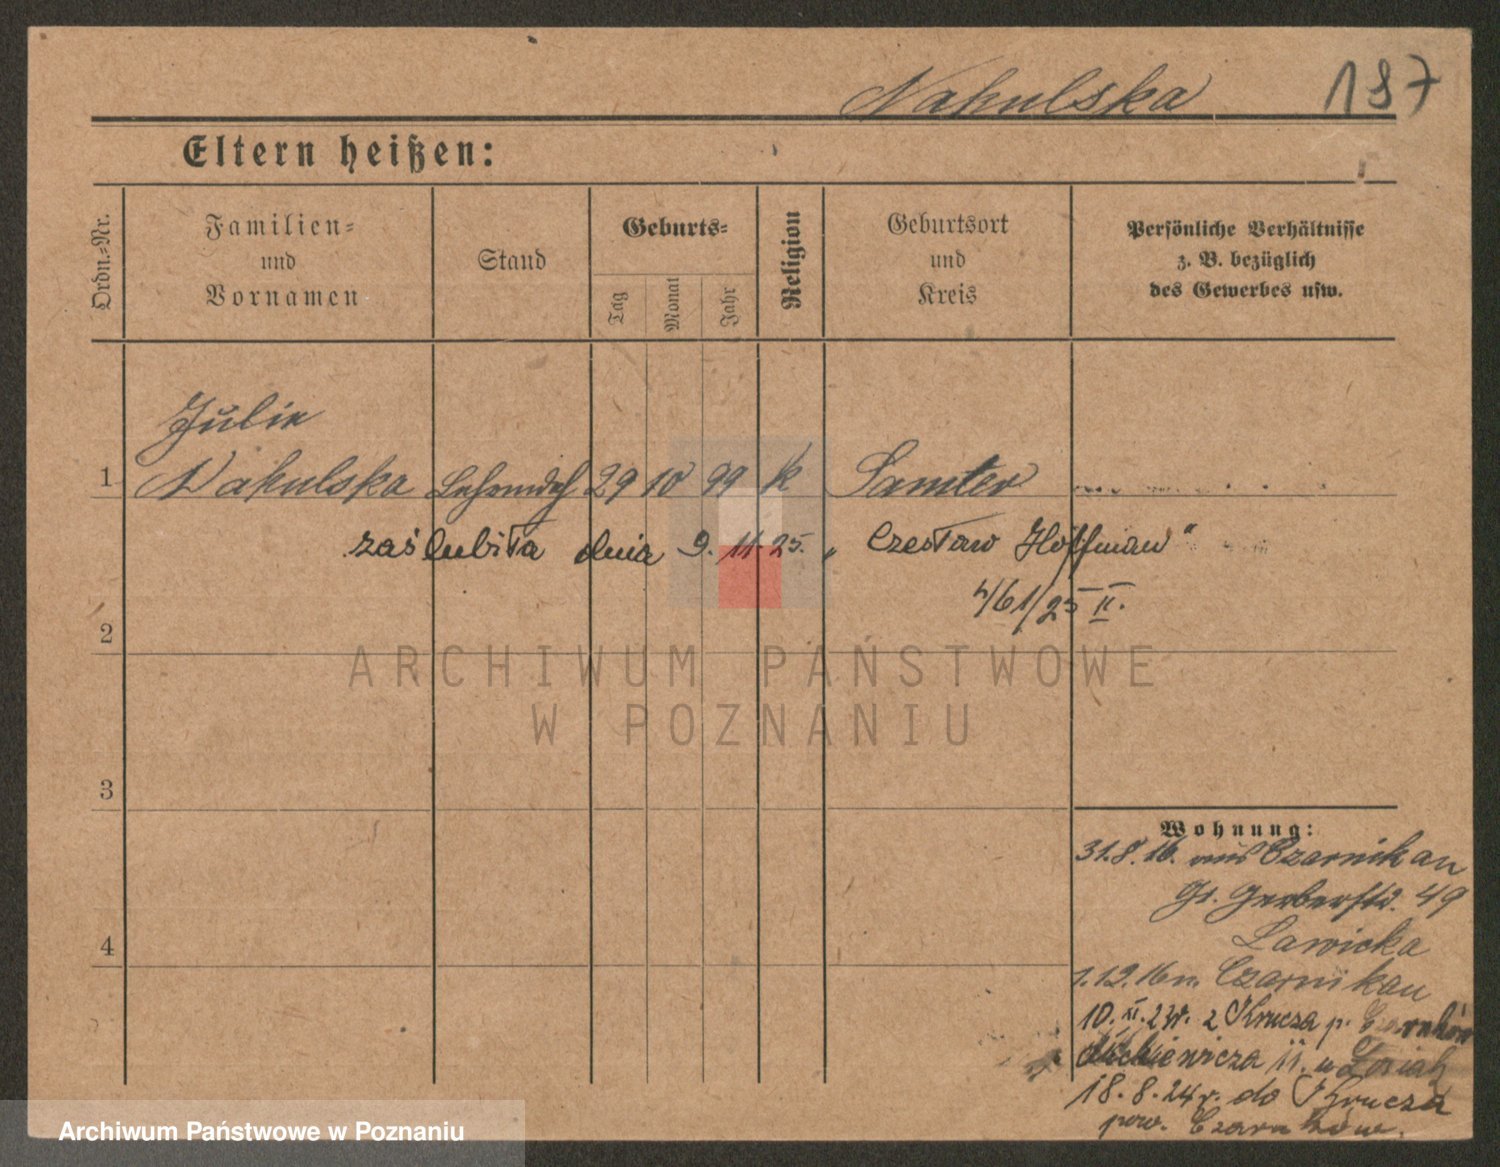 Nakulska 187
Eltern heißen:
Ordn.-Nr.
Familien-
und
Vornamen
Stand
Geburts-
Tag
Monat
Jahr
Religion
Geburtsort
und
Kreis
Persönliche Verhältnisse
z. B. bezüglich
des Gewerbes usw.
Julie
1 Nakulska 29 10 99 k Samter
zaślubiła dnia 9. 11. 25. „ Czesław Hoffman"
461/25 II.
2
ARCHIWUM PAŃSTWOWE
W POZNANIU
3
Wohnung:
31.8.16. aus Czarnikau
Gr. Gerberstr. 49
Lawicka
1.12.16 n. Czarnikau
10. XI. 23r. z Krucza p. Czarnków
Mickiewicza 11. u
4
18.8.24r. do Krucza
pow. Czarnków.
Archiwum Państwowe w Poznaniu